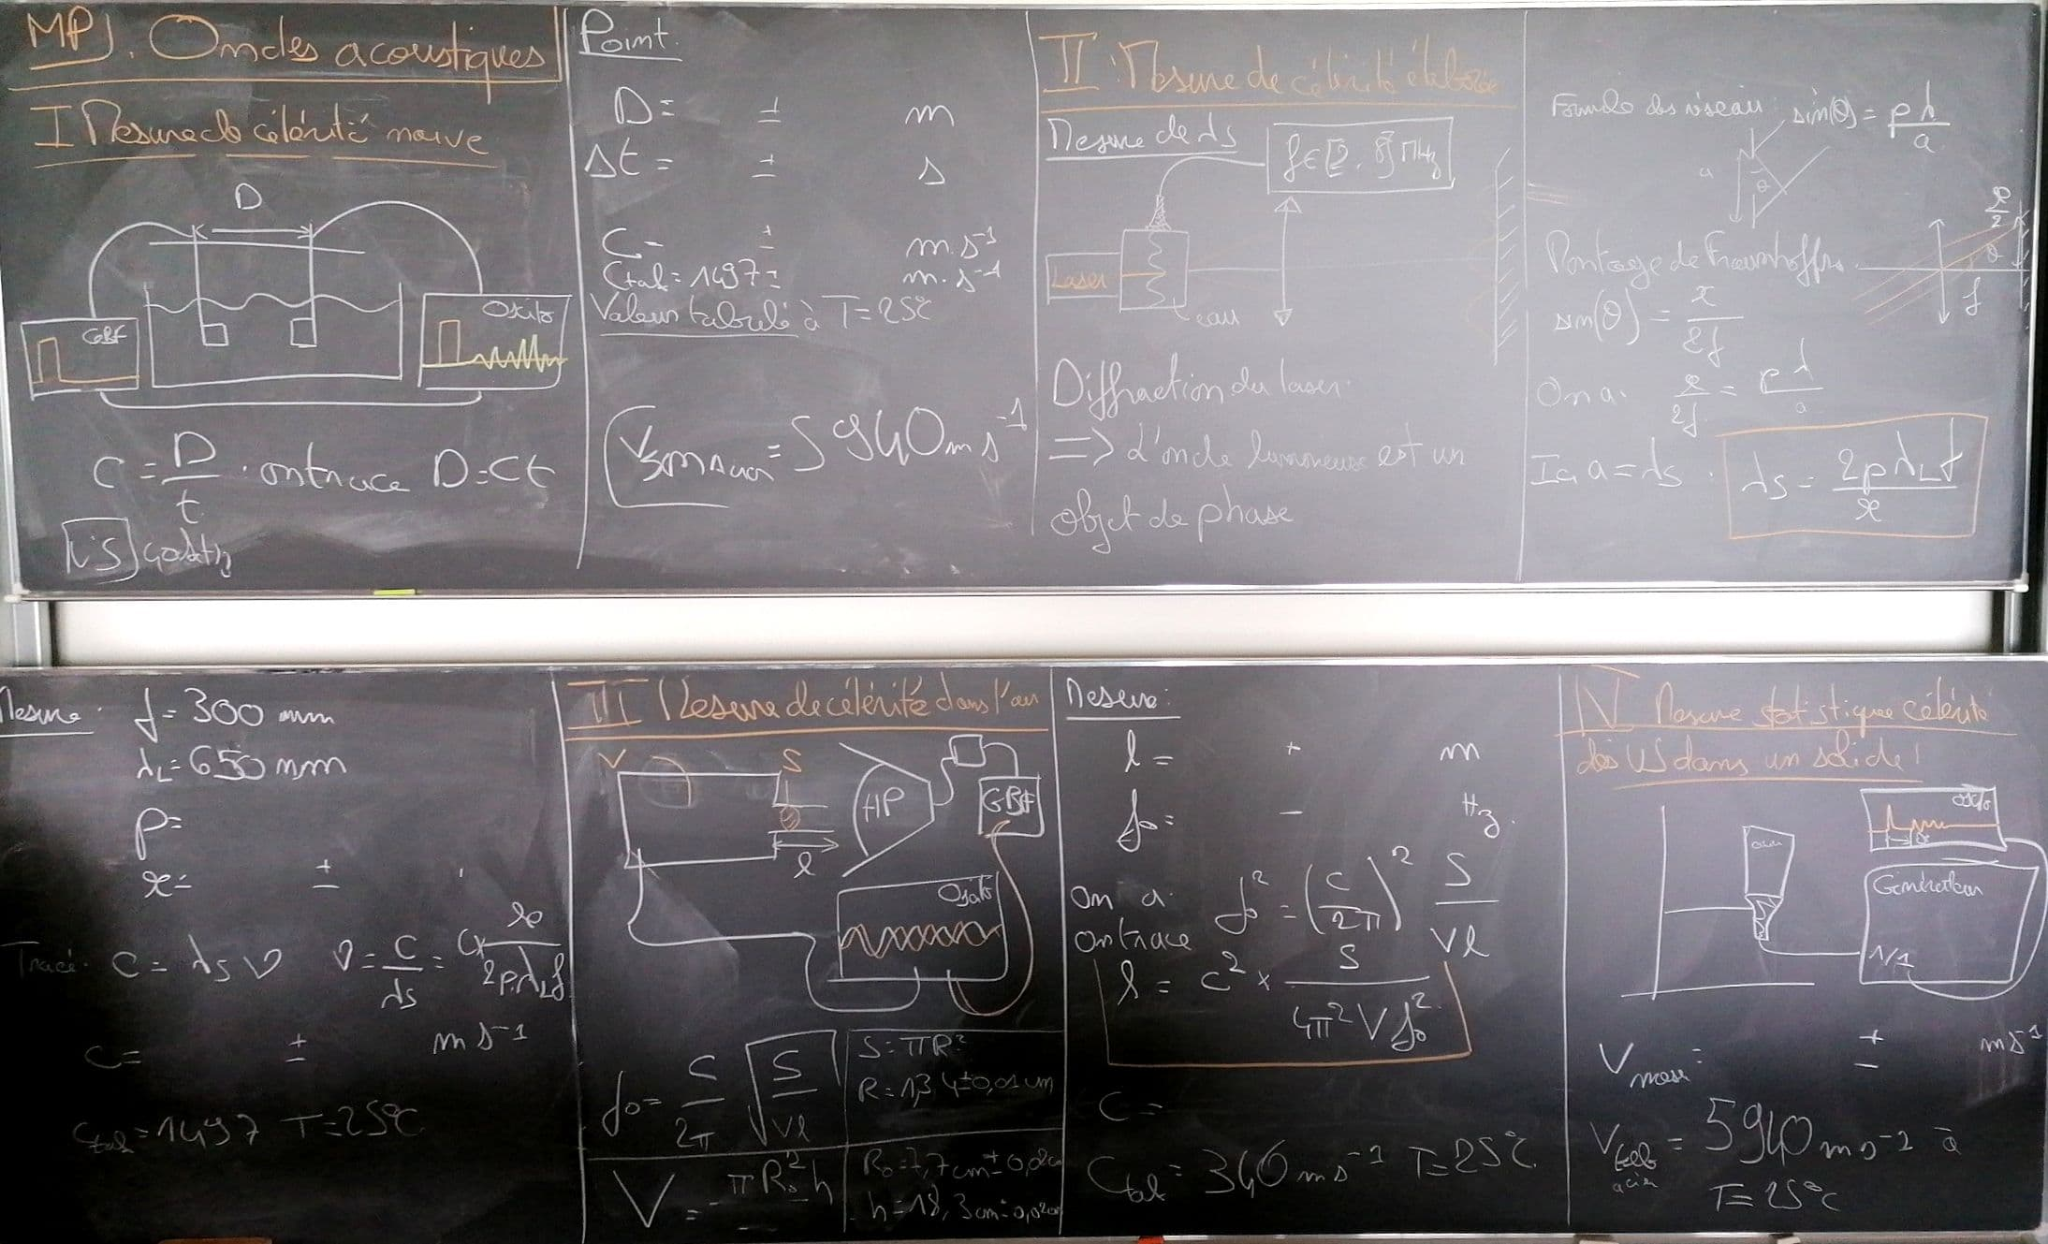 MP). Ondes acoustiques
I Mesure de célérité naïve
D
GBF
Oscillo
C = D/t . on trace D=Ct
Point.
D= ± m
Δt = ± s
C= ± m.s⁻¹
Ctab = 1497 ± m.s⁻¹
Valeur tabulée à T=25°C
= 5940 m s⁻¹
II. Mesure de célérité
Mesure de λs
f ∈ [2, 8] MHz
Laser
eau
Diffraction du laser.
=> L'onde lumineuse est un
objet de phase
Formule des réseaux: sin(θ) = pλ/a
a
θ
Montage de Fraunhoffer.
x/2
θ
f
sin(θ) = x/2f
On a. x/2f = pλ/a
Ici a = λs . λs = 2pλLf/x
Mesure: f = 300 mm
λL = 650 nm
p=
x= ±
Tracé. C = λs ν ν = C/λs = C× x/2pλLf
C= ± m s⁻¹
Ctab = 1497 T=25°C
III Mesure de célérité dans l'air
V S
HP
GBF
l
Oscillo
f₀ = C/2π √S/Vl
S = πR²
R = 13,4±0,01 cm
V = πR₀²h
R₀ = 7,7cm ± 0,02cm
h = 18,3cm ± 0,02cm
Mesure:
l = + m
f₀ = – Hz.
On a. f₀² = (c/2π)² S/Vl
On trace
l = c² × S/4π²Vf₀²
C=
Ctab = 340 m s⁻¹ T=25°C
IV Mesure statistique célérité
des US dans un solide!
Oscillo
acier
Générateur
Vmes = ± m s⁻¹
Vtab acier = 5940 m s⁻¹ à
T=25°C